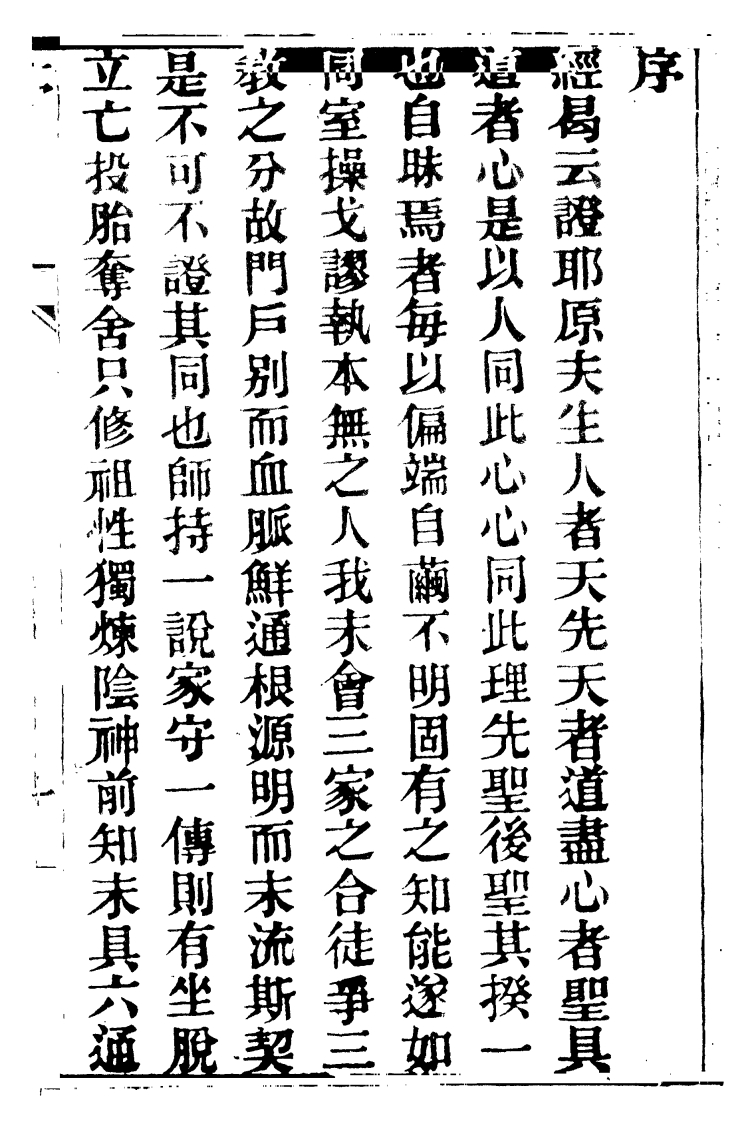 序
經曷云證耶原夫生人者天先天者道盡心者聖具
道者心是以人同此心心同此理先聖後聖其揆一
也自昧焉者每以偏端自繭不明固有之知能遂如
同室操戈謬執本無之人我未會三家之合徒爭三
教之分故門戶别而血脈鮮通根源明而末流斯契
是不可不證其同也師持一說家守一傳則有坐脫
立亡投胎奪舍只修祖性獨煉陰神前知未具六通